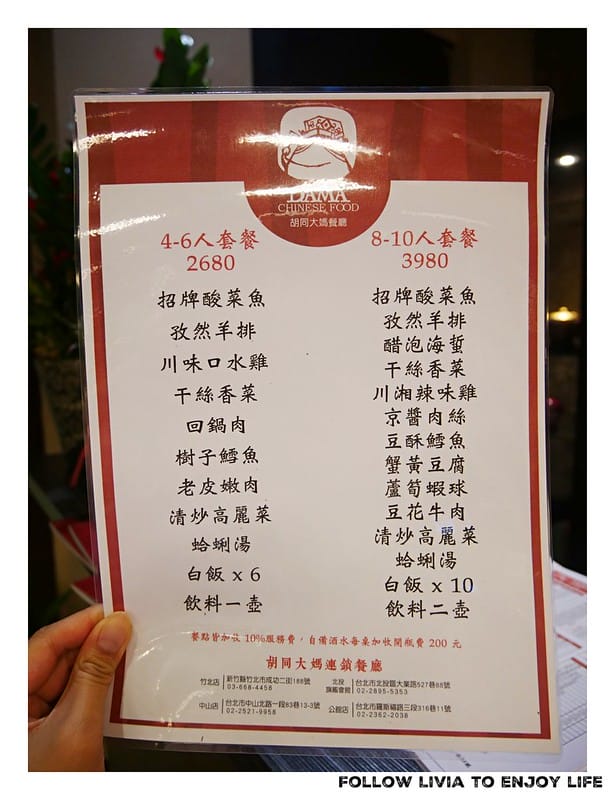 DAMA
CHINESE FOOD
胡同大媽餐廳
4-6人套餐
2680
招牌酸菜魚
孜然羊排
川味口水雞
干絲香菜
回鍋肉
樹子鱈魚
老皮嫩肉
清炒高麗菜
蛤蜊湯
白飯 x 6
飲料一壺
8-10人套餐
3980
招牌酸菜魚
孜然羊排
醋泡海蜇
干絲香菜
川湘辣味雞
京醬肉絲
豆酥鱈魚
蟹黃豆腐
蘆筍蝦球
豆花牛肉
清炒高麗菜
蛤蜊湯
白飯 x 10
飲料二壺
餐點皆加收 10%服務費，自備酒水每桌加收開瓶費 200 元
胡同大媽連鎖餐廳
竹北店 新竹縣竹北市成功二街188號
03-668-4458
北投旗艦會館 台北市北投區大業路527巷88號
02-2895-5353
中山店 台北市中山北路一段83巷13-3號
02-2521-9958
公館店 台北市羅斯福路三段316巷11號
02-2362-2038
FOLLOW LIVIA TO ENJOY LIFE